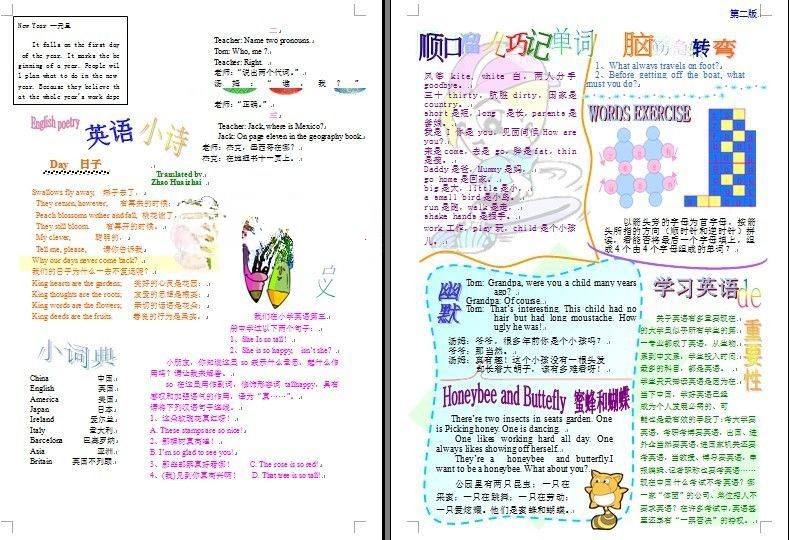 New Year 一元旦
It falls on the first day
of the year. It marks the be
ginning of a year. People wil
l plan what to do in the new
year. Because they believe th
at the whole year's work depe
English poetry
英语小诗
Day 日子
Translated by
Zhao Hua
Swallows fly away, 燕子去了，
They return, however, 有再来的时候；
Peach blossoms wither and fall, 桃花谢了，
They still bloom. 有再开的时候。
My clever, 聪明的，
Tell me, please, 请你告诉我，
Why our days never come back?
我们的日子为什么一去不复返呢？
King hearts are the gardens;
King thoughts are the roots;
King words are the flowers;
King deeds are the fruits.
小词典
China 中国
English 英国
America 美国
Japan 日本
Ireland 爱尔兰
Italy 意大利
Barcelona 巴塞罗纳
Asia 亚洲
Britain 英国不列颠
二
Teacher: Name two pronouns.
Tom: Who, me ?
Teacher: Right.
老师：“说出两个代词。”
汤姆：“谁，我？”
老师：“正确。”
三
Teacher: Jack, where is Mexico?
Jack: On page eleven in the geography book.
老师：杰克，墨西哥在哪？
杰克：在地理书十一页上。
我们在小学英语第三
册中学过以下两个句子：
1、She Is so tall!
2、She is so happy, isn't she?
小朋友，你知道这里 so 表示什么意思，起什么作
用吗？请让我来解答。
so 在这里用作副词，
感叹和加强语气的作用，译为“真……”。
请将下列汉语句子连线。
1、这朵玫瑰花真红呀！
A. These stamps are so nice!
2、那棵树真高哇！
B. I'm so glad to see you!
3、那些邮票真好看哪！ C. The rose is so red!
4、(我)见到你真高兴啊！ D. That tree is so tall!
第二版
顺口溜儿巧记单词
风筝 kite, white 白，两人分手
goodbye。
三十 thirty，肮脏 dirty，国家是
country。
short 是短，long 是长，parents 是
爸娘。
我是 I 你是 you，见面问候 How are
you?
来是 come，去是 go，胖是 fat, thin
是瘦。
Daddy 是爸，Mummy 是妈，
go home 是回家。
big 是大，little 是小，
a small bird 是小鸟。
run 是跑，walk 是走，
shake hands 是握手。
work 工作，play 玩，child 是个小孩
儿。
脑筋急转弯
1、What always travels on foot?
2、Before getting off the boat, what
must you do?
WORDS EXERCISE
以箭头旁的字母为首字母，按箭
头所指的方向（顺时针和逆时针）拼
读，看能否将最后一个字母填上，组
成 4 个由 4 个字母组成的单词？
幽默
Tom: Grandpa, were you a child many years
ago?
Grandpa: Of course.
Tom: That's interesting. This child had no
hair but had long moustache. How
ugly he was!
汤姆：爷爷，很多年前你是个小孩吗？
爷爷：那当然。
汤姆：真有趣！这个小孩没有一根头发
却长着大胡子，该有多难看呀！
Honeybee and Buttefly 蜜蜂和蝴蝶
There're two insects in seats garden. One
is Picking honey. One is dancing.
One likes working hard all day. One
always likes showing off herself.
They're a honeybee and butterfly.I
want to be a honeybee. What about you?
公园里有两只昆虫；一只在
采蜜；一只在跳舞；一只在劳动；
一只爱炫耀。他们是蜜蜂和蝴蝶。
学习英语de重要性
关于英语有多重要现在
的大学虽似乎所有学生的第
一专业都成了英语，从生物
系到中文系，学生投入时间
最多的科目，都是英语。
学生天天捧读英语是因为在
当下中国，学好英语已经
成为个人发迹必需的、可
能也是最有效的手段了：考大学要
英语，考研考博要英语，出国、进
外企当然要英语，进国家机关还要
考英语，当教授、博导要英语，申
报编辑、记者职称也要考英语……
现在中国什么考试不考英语？哪
一家“体面”的公司、单位招人不
要求英语？在许多考试中，英语甚
至还享有“一票否决”的特权。